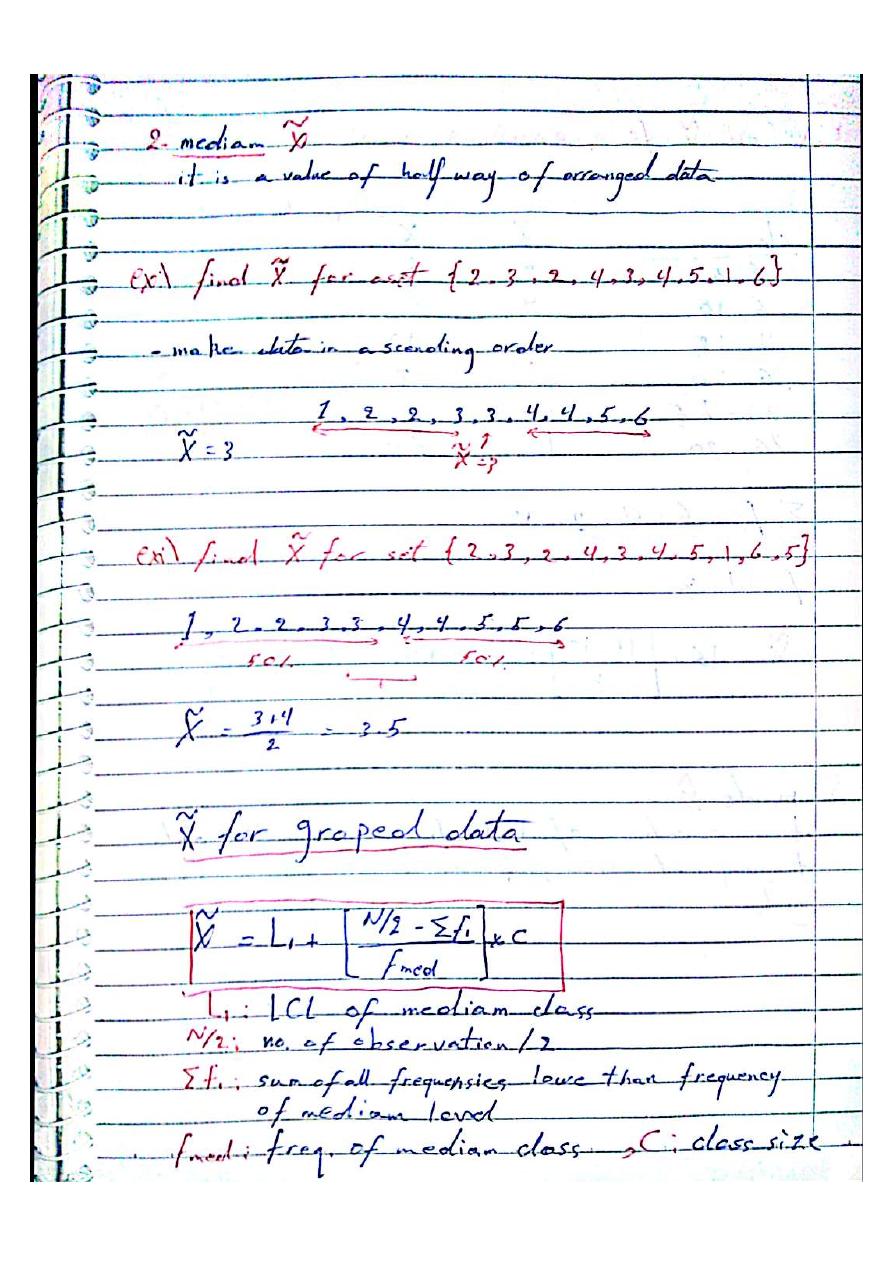 2- mediam X̃
it is a value of half way of arranged data
Ex\ find X̃ for a set {2, 3, 2, 4, 3, 4, 5, 1, 6}
- make data in ascending order
1, 2, 2, 3, 3, 4, 4, 5, 6
X̃ = 3
X̃ = 3
Ex\ find X̃ for set {2, 3, 2, 4, 3, 4, 5, 1, 6, 5}
1, 2, 2, 3, 3, 4, 4, 5, 5, 6
50% 50%
X̃ = 3+4/2 = 3.5
X̃ for graped data
X̃ = L₁ + [N/2 - Σf₁ / fmed] × C
L₁: LCL of mediam class
N/2: no. of observation/2
Σf₁: sum of all frequensies lowe than frequency
of mediam level
fmed: freq. of median class, C: class size